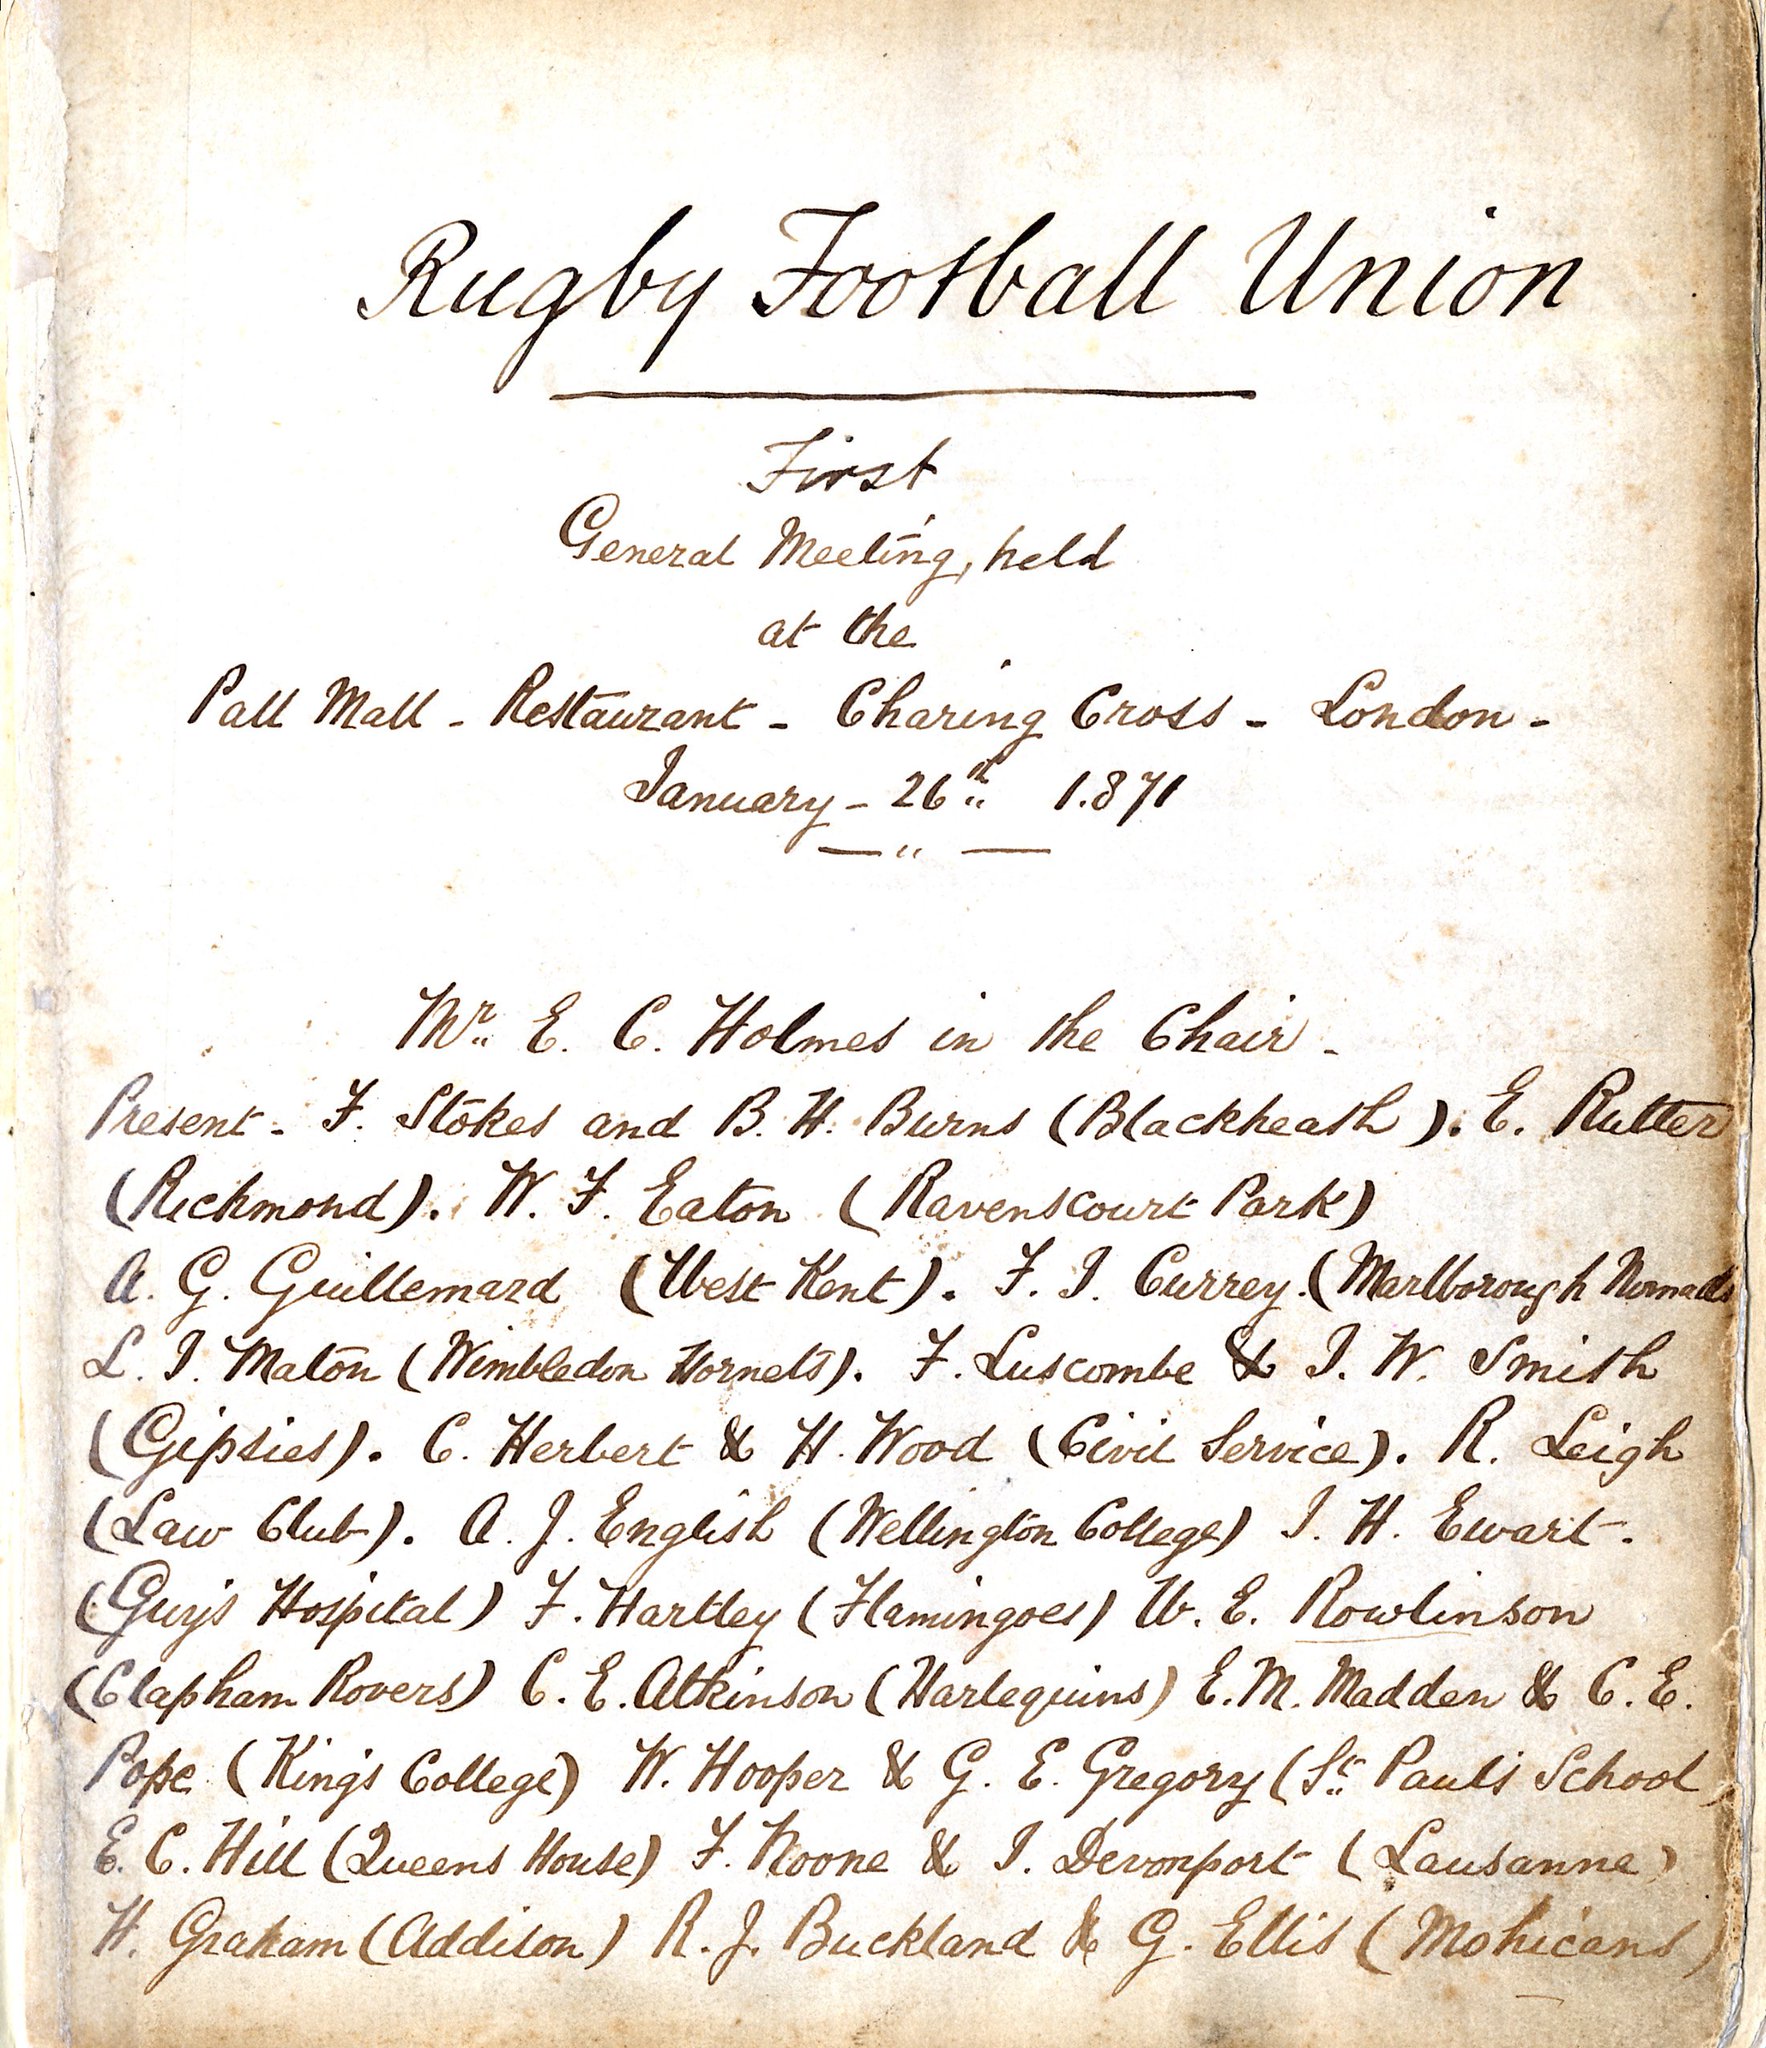 Rugby Football Union
First
General Meeting, held
at the
Pall Mall - Restaurant - Charing Cross - London -
January - 26th 1.871
Mr. E. C. Holmes in the Chair -
Present - F. Stokes and B. H. Burns (Blackheath). E. Rutter
(Richmond). W. F. Eaton (Ravenscourt Park)
A. G. Guillemard (West Kent). F. I. Currey. (Marlborough Nomads
L. J. Maton (Wimbledon Hornets). F. Luscombe & J. W. Smith
(Gipsies). C. Herbert & H. Wood (Civil Service). R. Leigh
(Law Club). A. J. English (Wellington College) J. H. Ewart.
(Guy's Hospital) F. Hartley (Flamingoes) W. E. Rowlinson
(Clapham Rovers) C. E. Atkinson (Harlequins) E. M. Madden & C. E.
Pope (King's College) W. Hooper & G. E. Gregory (St. Paul's School)
E. C. Hill (Queens House) F. Noone & J. Devonport (Lausanne)
H. Graham (Addison) R. J. Buckland & G. Ellis (Mohicans)